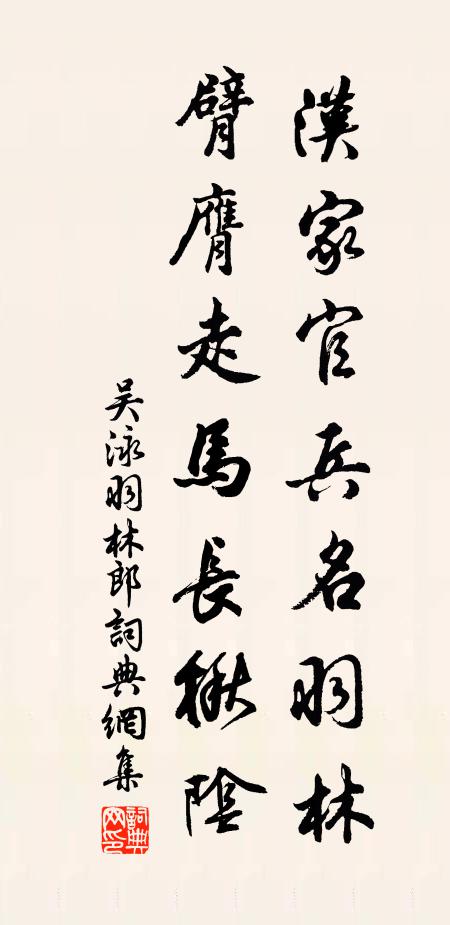 漢家官兵名羽林
臂膺走馬長楸陰
吴泳羽林郎詞典網集
詞典网印